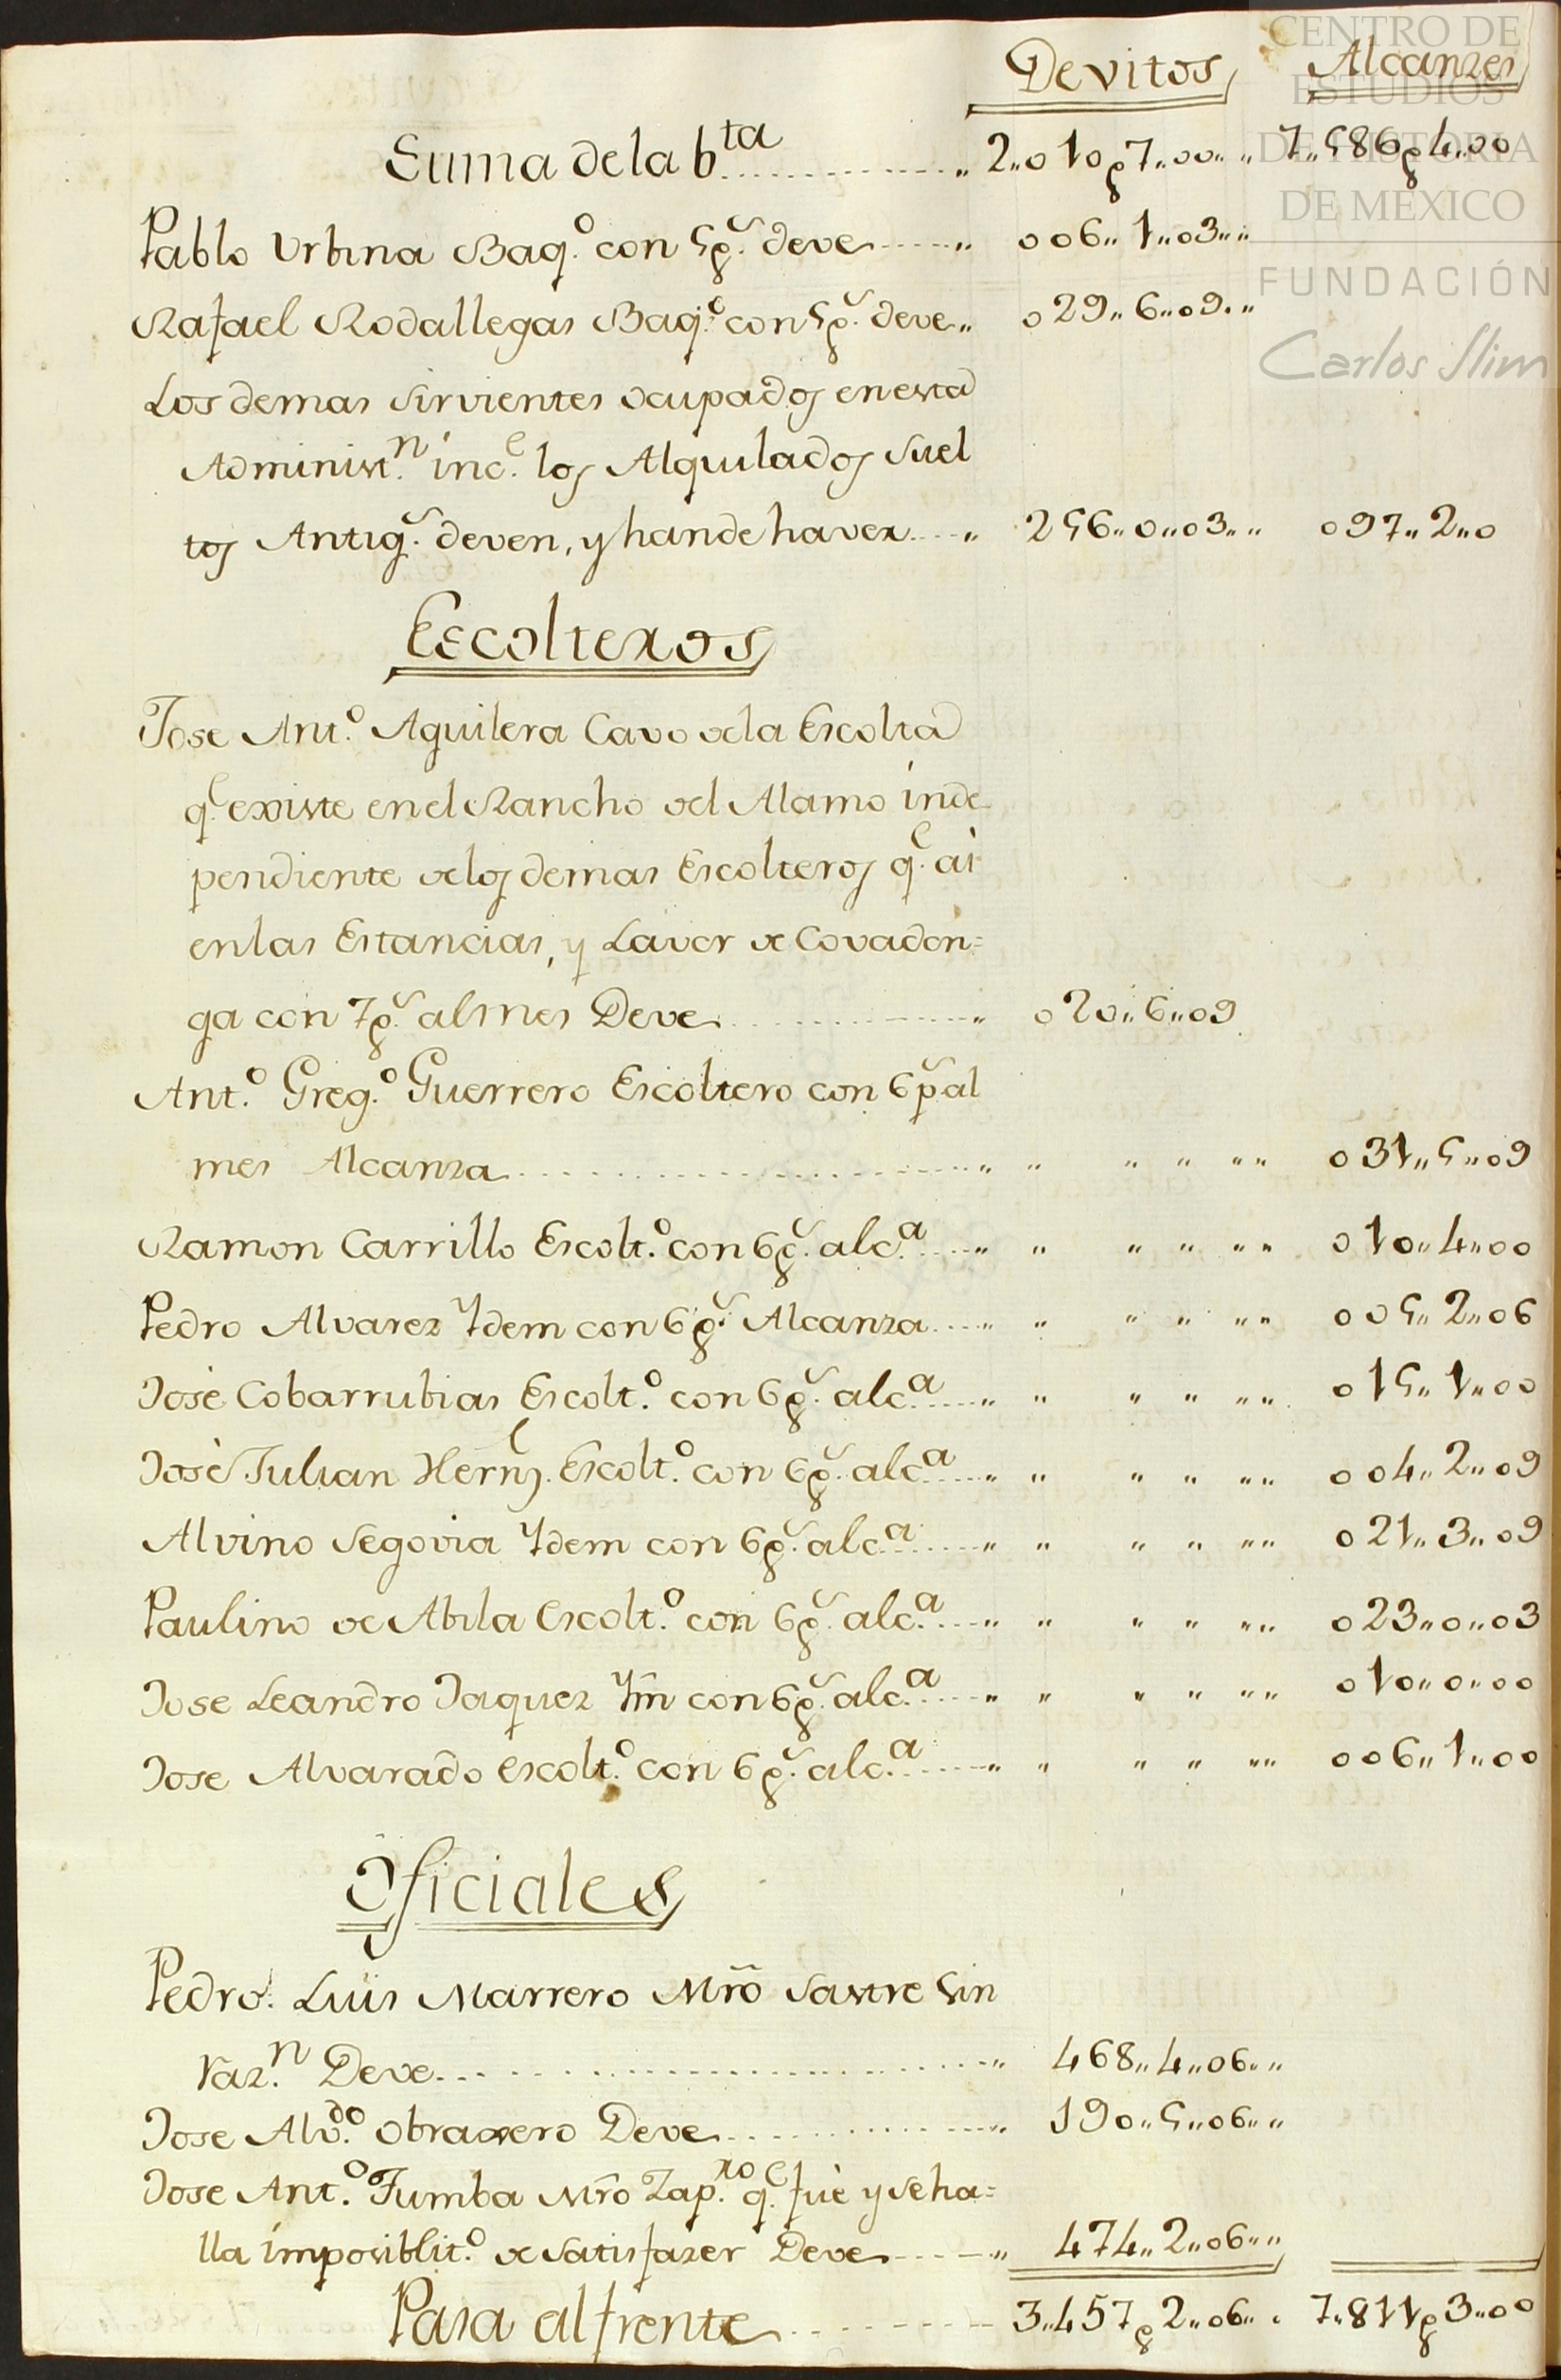 Devitos Alcanzes
Suma de la b.ta .. 2..010p7..00.. 7..586p4..00
Pablo Urbina Baq.o con 5p.s deve .. 006..1..03..
Rafael Rodallegas Baq.o con 5p.s deve .. 029..6..09..
Los demas sirvientes ocupados en esta
Administ.n inc.e los Alquilados suel
tos Antig.s deven, y han de haver .. 256..0..03.. 097..2..0
Escolteros
Jose Ant.o Aguilera Cavo de la Escolta
q.e existe en el Rancho del Alamo inde
pendiente de los demas Escolteros q.e ai
en las Estancias, y Lavor de Covadon=
ga con 7p.s al mes Deve .. 020..6..09
Ant.o Greg.o Guerrero Escoltero con 6p.s al
mes Alcanza .. 031..5..09
Ramon Carrillo Escolt.o con 6p.s alc.a .. 010..4..00
Pedro Alvarez Ydem con 6p.s Alcanza .. 005..2..06
José Cobarrubias Escolt.o con 6p.s alc.a .. 015..1..00
José Julian Hernz. Escolt.o con 6p.s alc.a .. 004..2..09
Alvino Segovia Ydem con 6p.s alc.a .. 021..3..09
Paulino de Abila Escolt.o con 6p.s alc.a .. 023..0..03
Jose Leandro Jaquez Ym con 6p.s alc.a .. 010..0..00
Jose Alvarado escolt.o con 6p.s alc.a .. 006..1..00
Oficiales
Pedro Luis Marrero Mrõ Sastre sin
raz.n Deve .. 468..4..06..
Jose Alv.do Obraxero Deve .. 190..5..06..
Jose Ant.o Tumba Mrõ Zap.ro q.e fuè y se ha=
lla imposiblit.o de satisfazer Deve .. 474..2..06..
Pasa al frente .. 3..457p2..06.. 7..811p3..00
CENTRO DE
ESTUDIOS
DE HISTORIA
DE MÉXICO
FUNDACIÓN
Carlos Slim